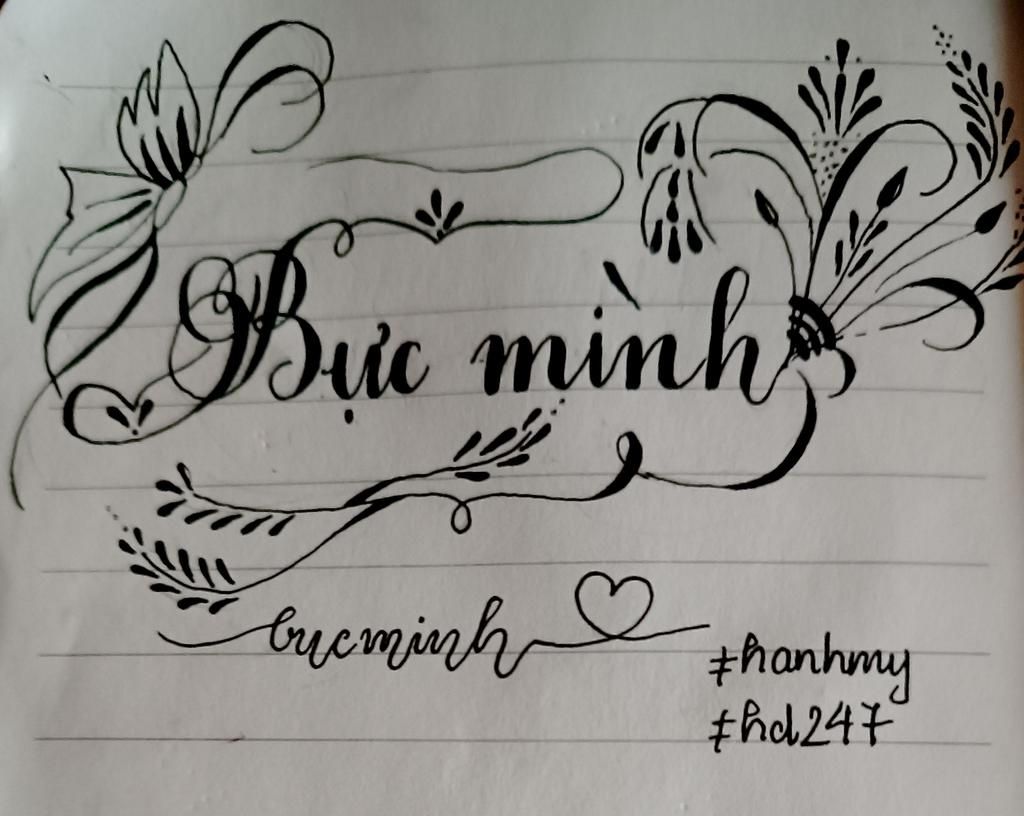 Bực mình
bucminh
#hanhmy
#hd247